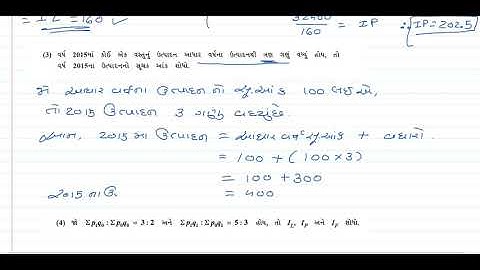 = IL = 160 ✓
32400
160
= IP ∴ IP = 202.5
(3) વર્ષ 2015માં કોઈ એક વસ્તુનું ઉત્પાદન આધાર વર્ષના ઉત્પાદનથી ત્રણ ગણું વધ્યું હોય, તો
વર્ષ 2015ના ઉત્પાદનનો સૂચક આંક શોધો.
આધાર વર્ષના ઉત્પાદનનો સૂચઆંક 100 લઈએ,
તો 2015 ઉત્પાદન 3 ગણું વધ્યું છે.
2015 મા ઉત્પાદન = આધાર વર્ષ સૂચઆંક + વધારો.
= 100 + (100 × 3)
= 100 + 300
2015 ના ઉ = 400
(4) જો Σp₁q₀ : Σp₀q₀ = 3 : 2 અને Σp₁q₁ : Σp₀q₁ = 5 : 3 હોય, તો I_L, I_P અને I_F શોધો.